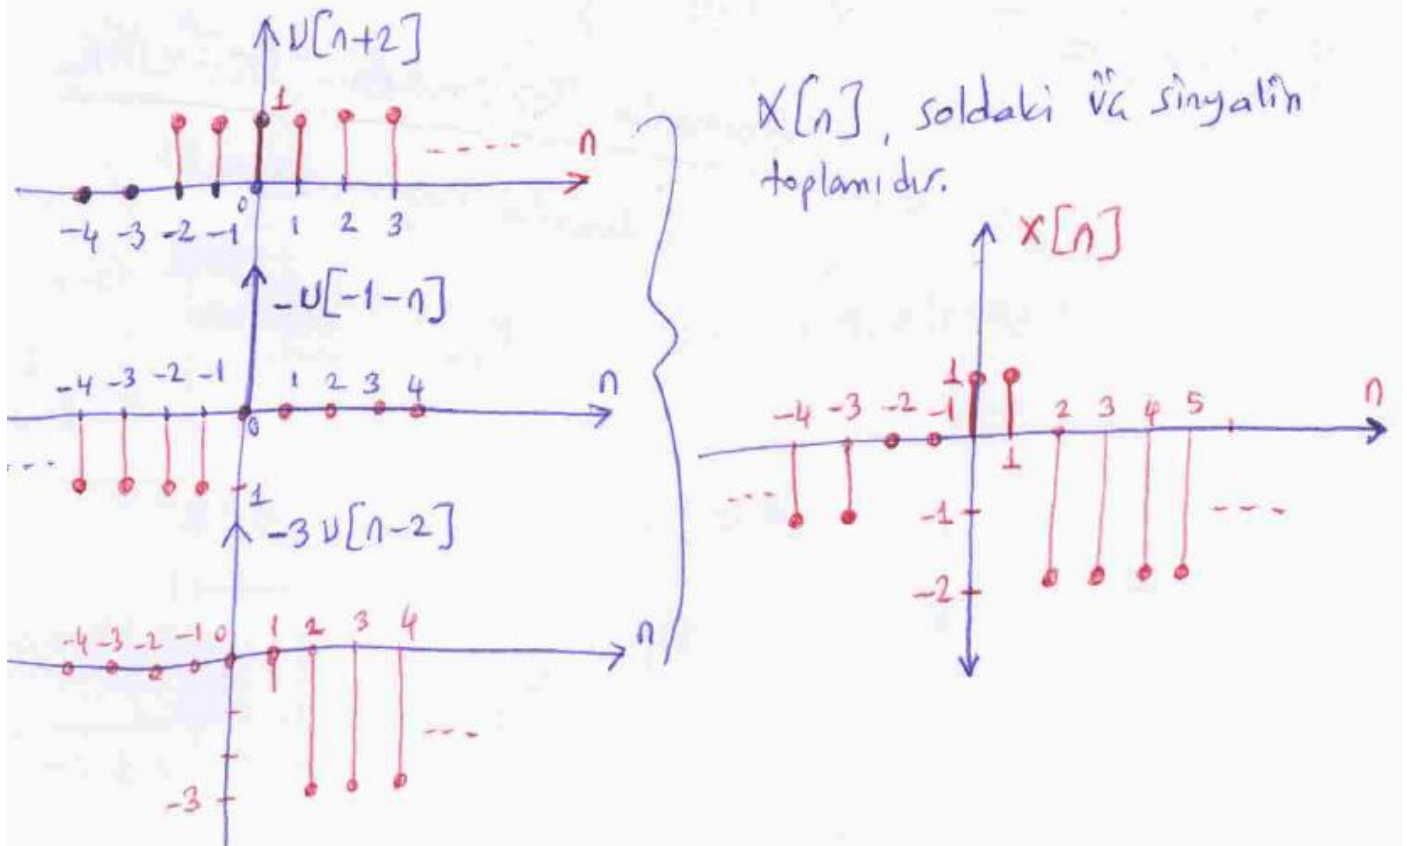 U[n+2]
1
n
0
-4 -3 -2 -1 1 2 3
-U[-1-n]
-4 -3 -2 -1 1 2 3 4 n
0
1
-3U[n-2]
-4 -3 -2 -1 0 1 2 3 4 n
-3
X[n], soldaki üç sinyalin
toplamıdır.
X[n]
1
-4 -3 -2 -1 2 3 4 5 n
1
-1
-2